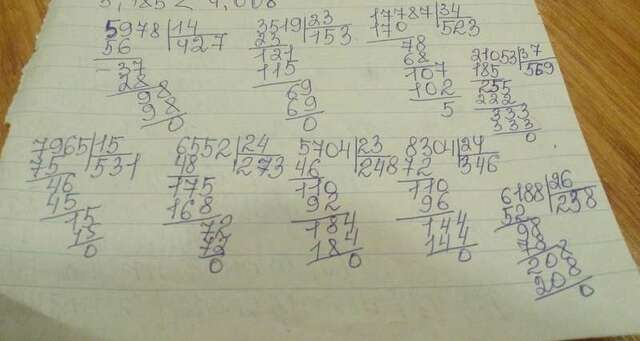 5978|14
56 |427
- 37
28
98
98
0
3519|23
23 |153
121
115
69
69
0
17787|34
170 |523
78
68
107
102
5
21053|37
185 |569
255
222
333
333
0
7965|15
75 |531
46
45
15
15
0
6552|24
48 |273
175
168
72
72
0
5704|23
46 |248
110
92
184
184
0
8304|24
72 |346
110
96
144
144
0
6188|26
52 |238
98
78
208
208
0